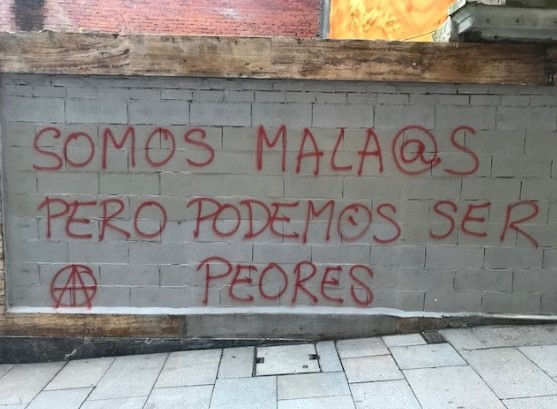 SOMOS MALA@S
PERO PODEMOS SER
PEORES